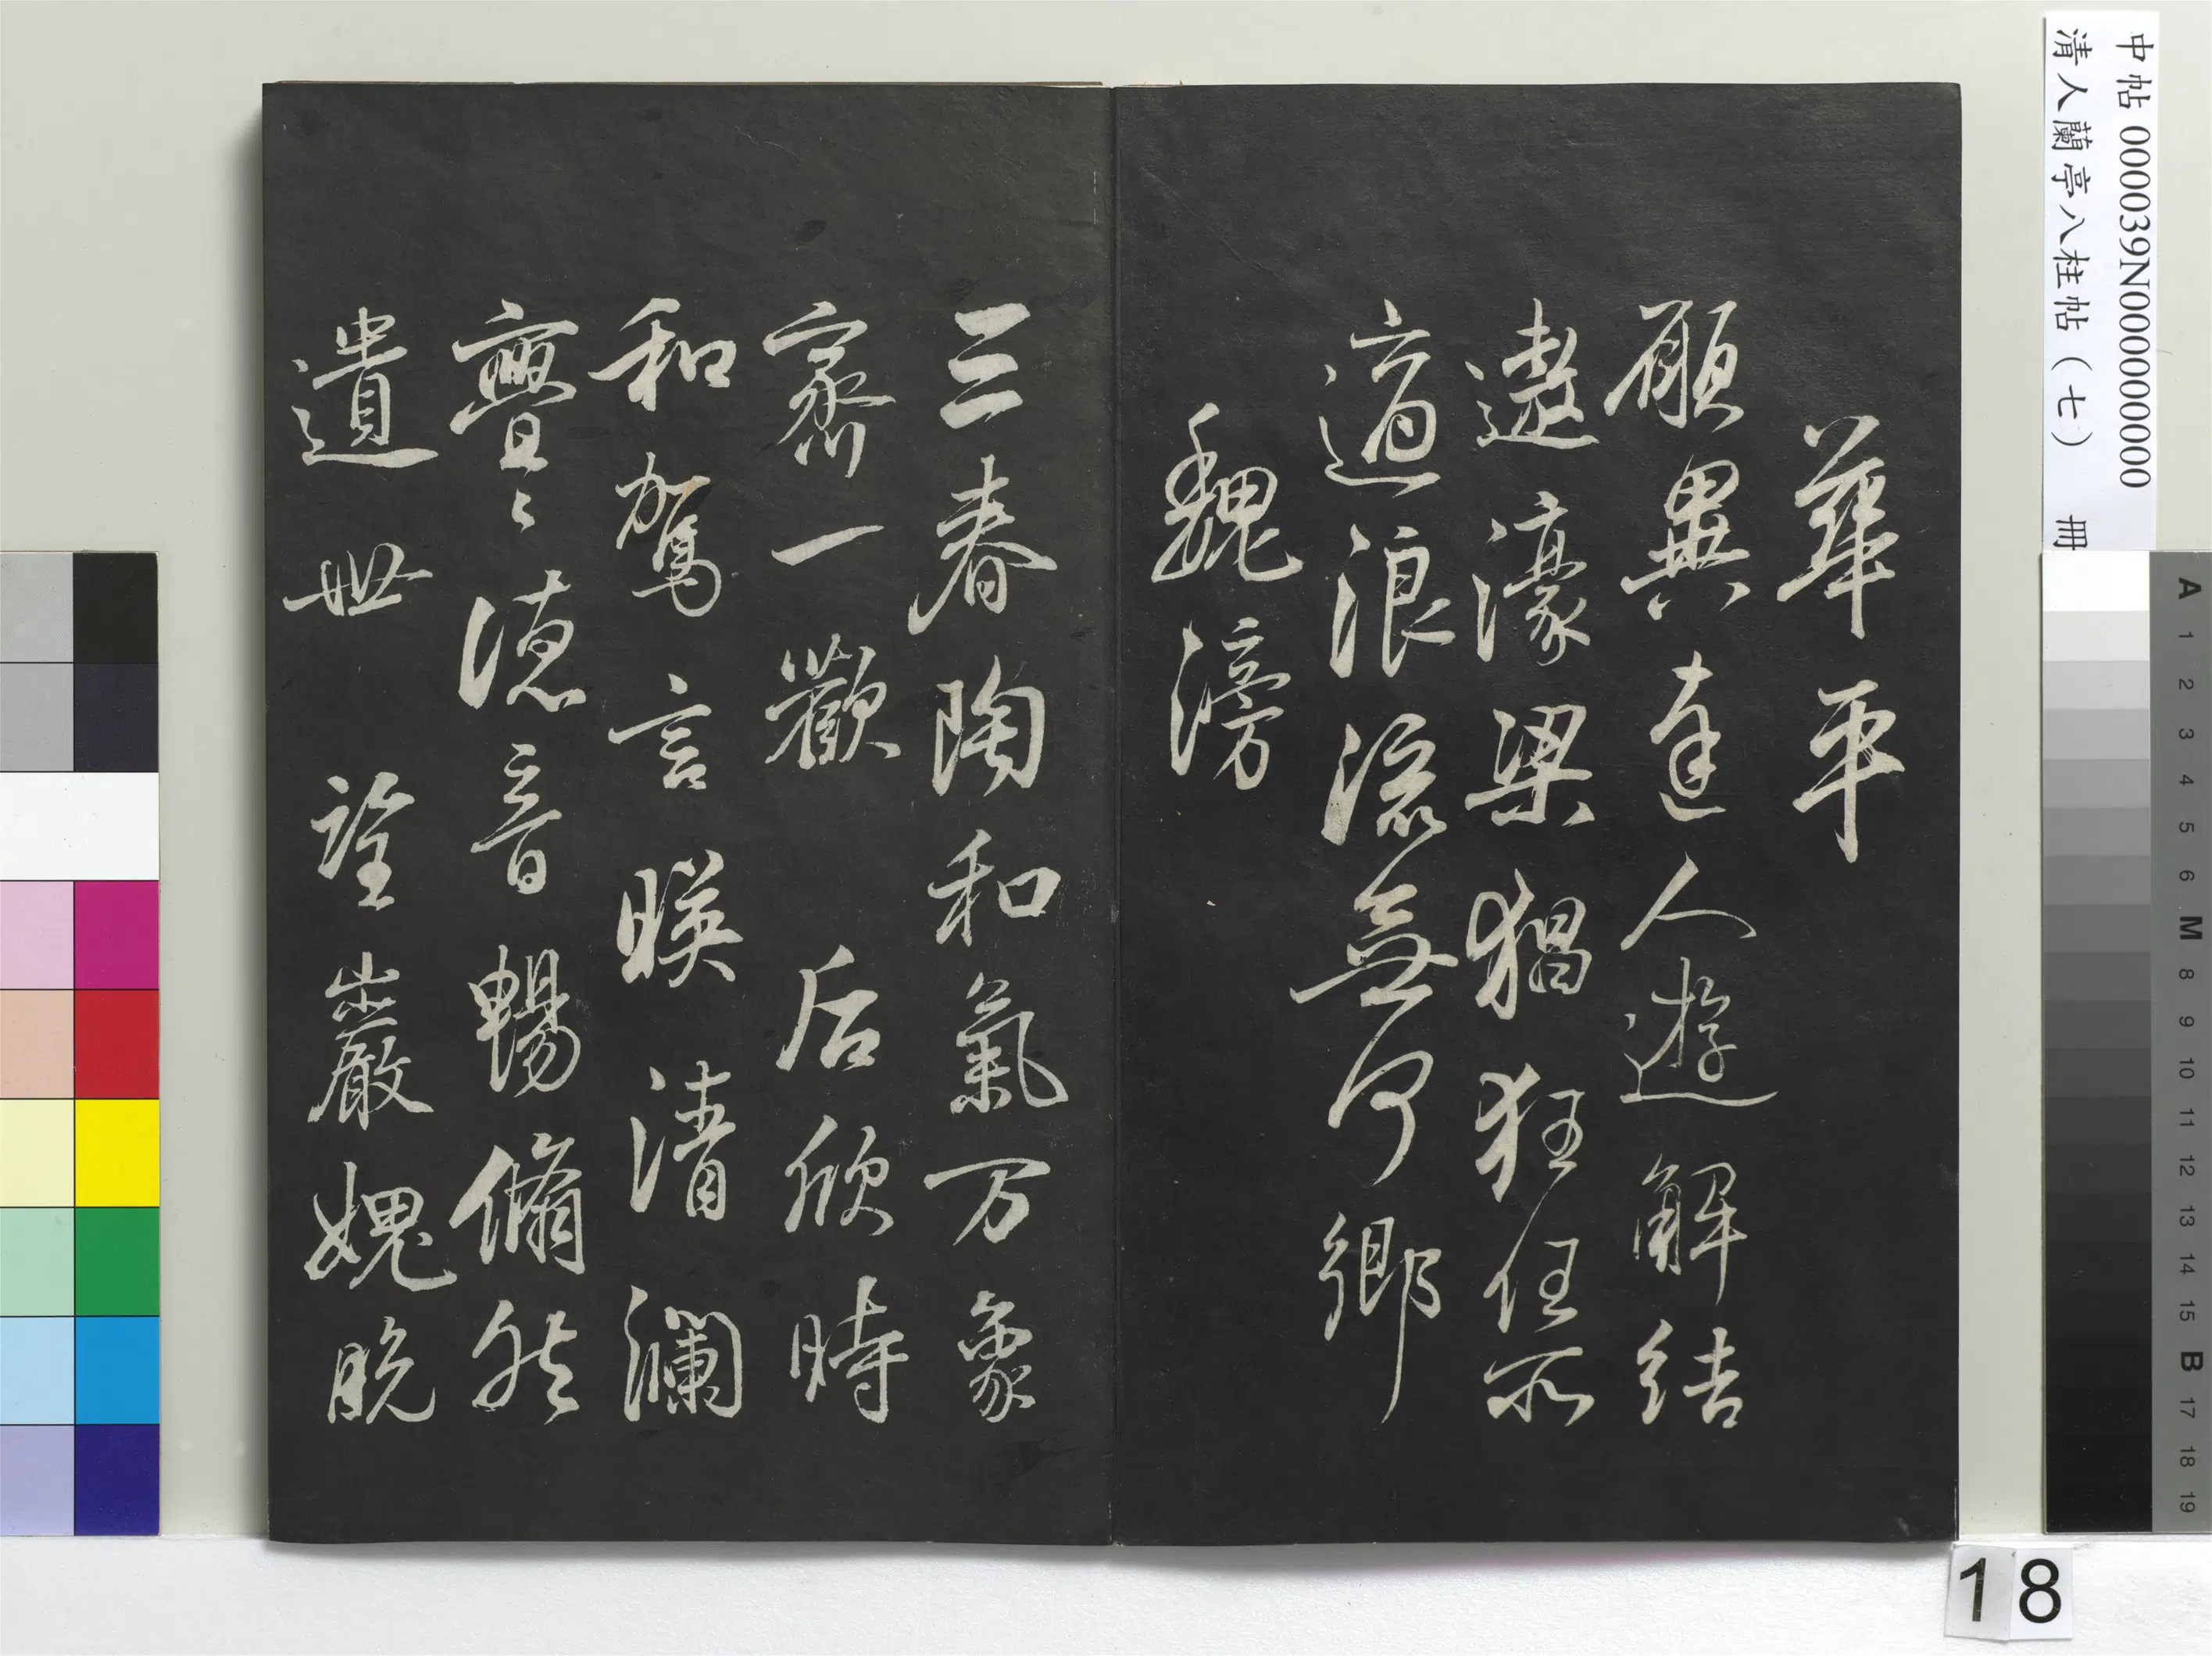 華平
願與達人遊解結
遨濠梁猖狂任所
適浪流無何鄉
魏滂
三春陶和氣万象
齊一歡 后欣時
和駕言暎清瀾
亹々德音暢脩然
遺世 詮巖愧晩
中帖 000039N000000000
清人蘭亭八柱帖（七） 冊
18
A 1 2 3 4 5 6 M 8 9 10 11 12 13 14 15 B 17 18 19